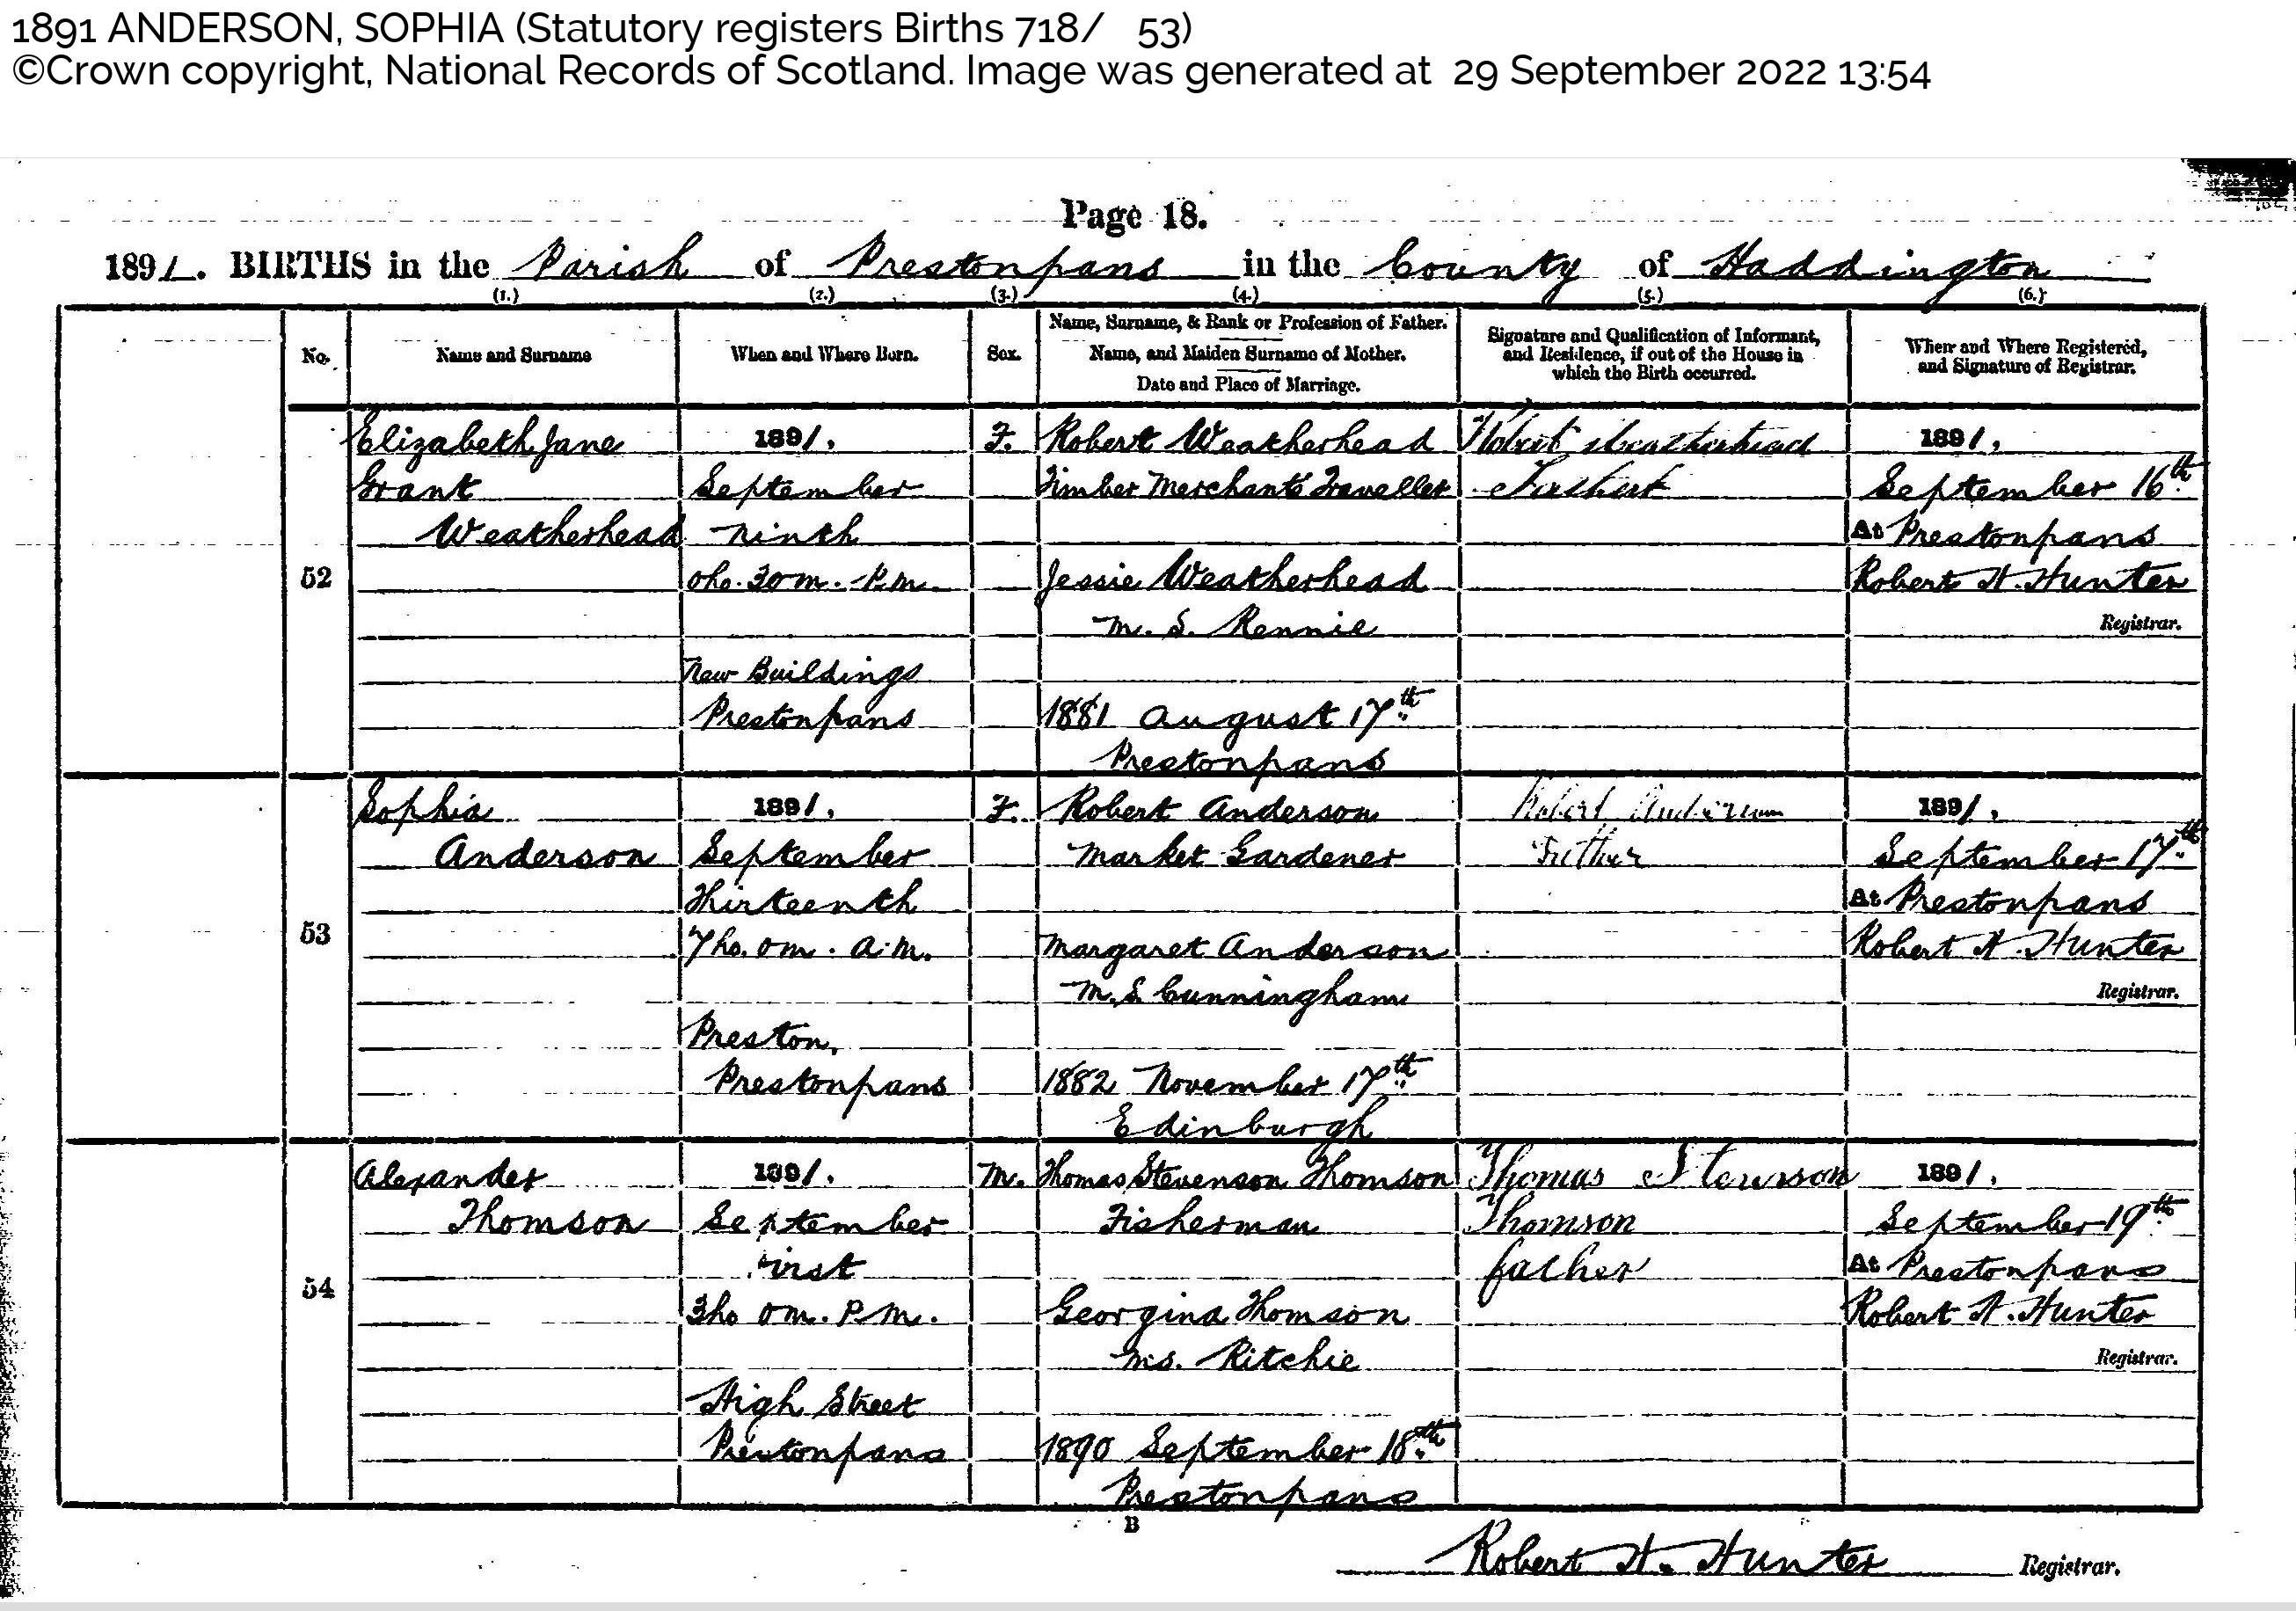 1891 ANDERSON, SOPHIA (Statutory registers Births 718/ 53)
©Crown copyright, National Records of Scotland. Image was generated at 29 September 2022 13:54
Page 18.
1891. BIRTHS in the Parish of Prestonpans in the County of Haddington
(1.) (2.) (3.) (4.) (5.) (6.)
No.
Name and Surname
When and Where Born.
Sex.
Name, Surname, & Rank or Profession of Father.
Name, and Maiden Surname of Mother.
Date and Place of Marriage.
Signature and Qualification of Informant,
and Residence, if out of the House in
which the Birth occurred.
When and Where Registered,
and Signature of Registrar.
52
Elizabeth Jane
Grant
Weatherhead
1891.
September
Ninth
0ho. 30m. P.M.
New Buildings
Prestonpans
F.
Robert Weatherhead
Timber Merchant's Traveller
Jessie Weatherhead
M. S. Rennie
1881 August 17th
Prestonpans
Robert Weatherhead
Father
1891.
September 16th
At Prestonpans
Robert H. Hunter
Registrar.
53
Sophia
Anderson
1891.
September
Thirteenth
7ho. 0m. A.M.
Preston,
Prestonpans
F.
Robert Anderson
Market Gardener
Margaret Anderson
M.S. Cunningham
1882 November 17th
Edinburgh
Robert Anderson
Father
1891.
September 17th
At Prestonpans
Robert H. Hunter
Registrar.
54
Alexander
Thomson
1891.
September
First
3ho 0m. P.M.
High Street
Prestonpans
M.
Thomas Stevenson Thomson
Fisherman
Georgina Thomson
M.S. Ritchie
1890 September 18th
Prestonpans
Thomas Stevenson
Thomson
father
1891.
September 19th
At Prestonpans
Robert H. Hunter
Registrar.
B
Robert H. Hunter Registrar.